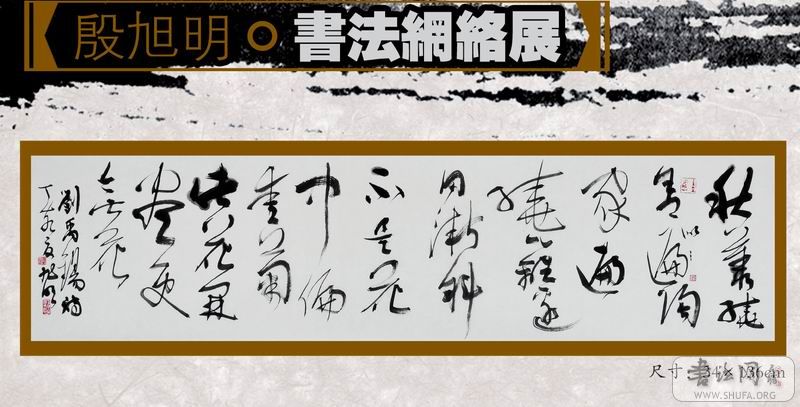 殷旭明。書法網絡展
秋叢繞
舍似遍陶
家遍
繞籬邊
日漸斜
不是花
中偏
愛菊
此花開
盡更
無花
劉禹錫詩
丁亥夏旭明
尺寸：34×136cm
WWW.SHUFA.ORG